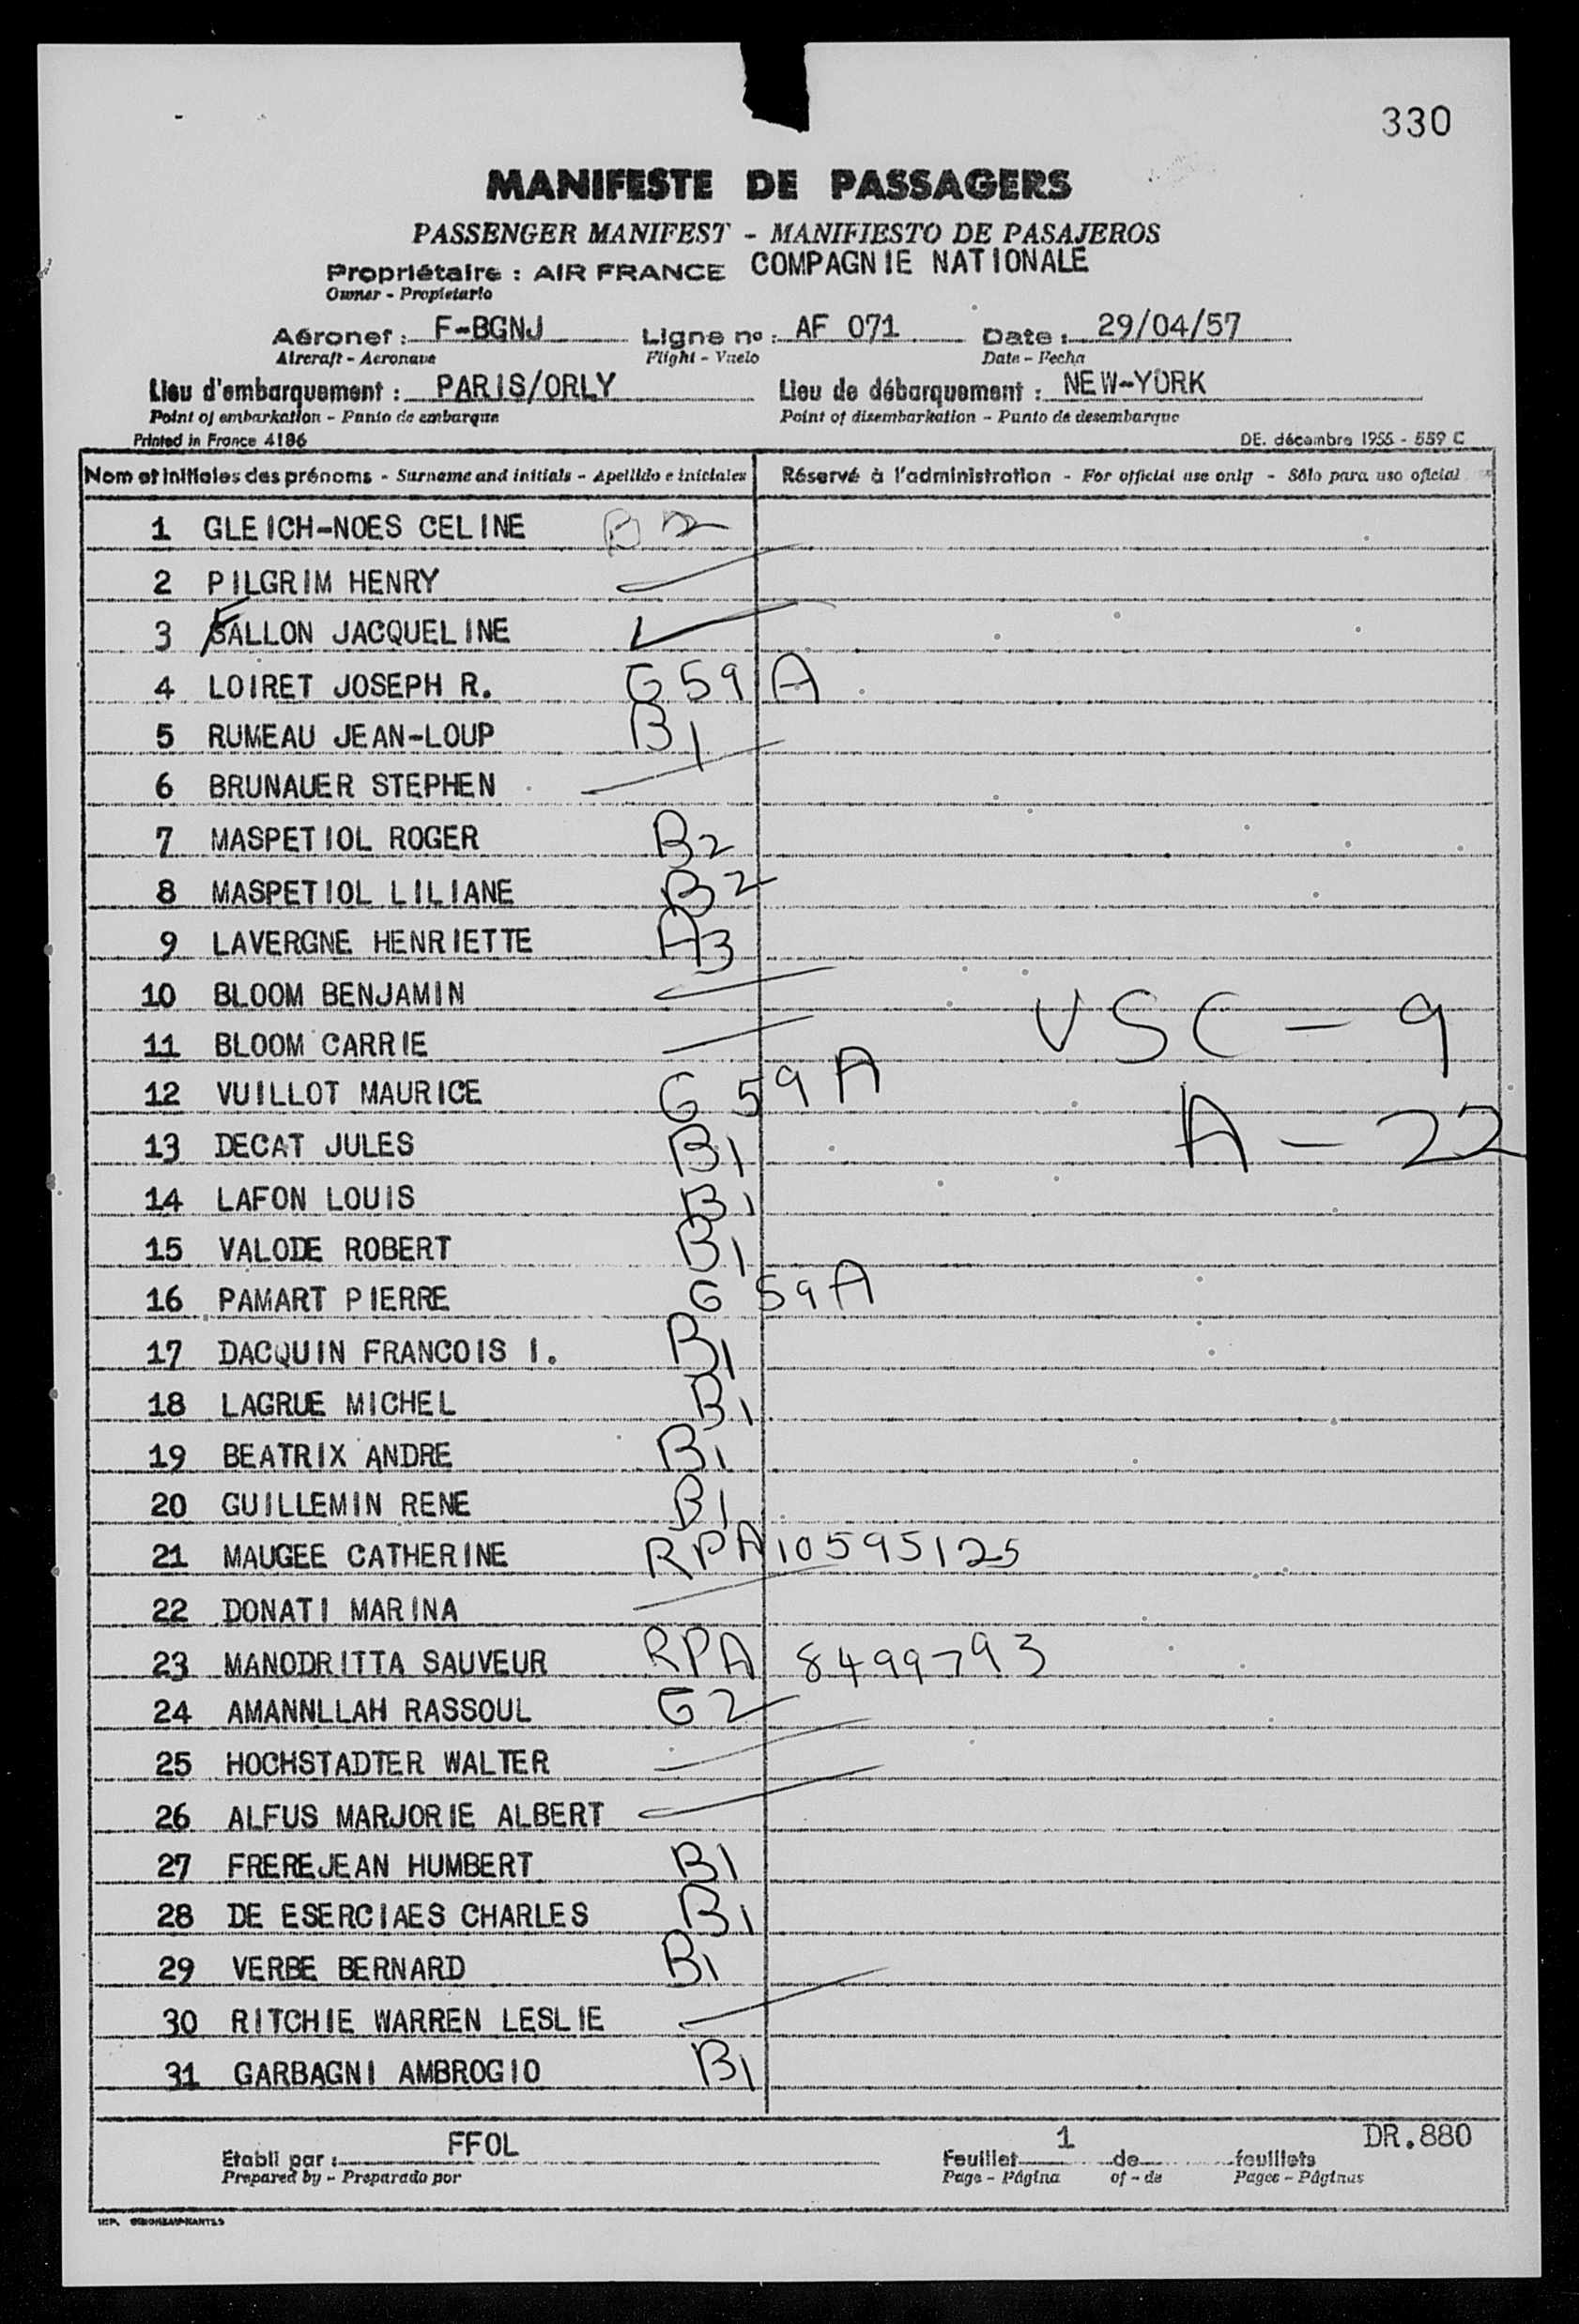 330
MANIFESTE DE PASSAGERS
PASSENGER MANIFEST - MANIFIESTO DE PASAJEROS
Propriétaire : AIR FRANCE COMPAGNIE NATIONALE
Owner - Propietario
Aéronef : F-BGNJ Ligne no : AF 071 Date : 29/04/57
Aircraft - Aeronave Flight - Vuelo Date - Fecha
Lieu d'embarquement : PARIS/ORLY Lieu de débarquement : NEW-YORK
Point of embarkation - Punto de embarque Point of disembarkation - Punto de desembarque
Printed in France 4186 DE. décembre 1955 - 559 C
Nom et initiales des prénoms - Surname and initials - Apellido e iniciales Réservé à l'administration - For official use only - Sólo para uso oficial
1 GLEICH-NOES CELINE B2
2 PILGRIM HENRY
3 FALLON JACQUELINE
4 LOIRET JOSEPH R. G59A
5 RUMEAU JEAN-LOUP B1
6 BRUNAUER STEPHEN
7 MASPETIOL ROGER B2
8 MASPETIOL LILIANE B2
9 LAVERGNE HENRIETTE A3
10 BLOOM BENJAMIN
USC - 9
11 BLOOM CARRIE
12 VUILLOT MAURICE G 59A
A - 22
13 DECAT JULES B1
14 LAFON LOUIS B1
15 VALODE ROBERT B1
16 PAMART PIERRE G 59A
17 DACQUIN FRANCOIS I. B1
18 LAGRUE MICHEL B1
19 BEATRIX ANDRE B1
20 GUILLEMIN RENE B1
21 MAUGEE CATHERINE RPA 10595125
22 DONATI MARINA
23 MANODRITTA SAUVEUR RPA 8499793
24 AMANNLLAH RASSOUL G2
25 HOCHSTADTER WALTER
26 ALFUS MARJORIE ALBERT
27 FREREJEAN HUMBERT B1
28 DE ESERCIAES CHARLES B1
29 VERBE BERNARD B1
30 RITCHIE WARREN LESLIE
31 GARBAGNI AMBROGIO B1
DR.880
Etabli par : FFOL Feuillet 1 de feuillets
Prepared by - Preparado por Page - Página of - de Pages - Páginas